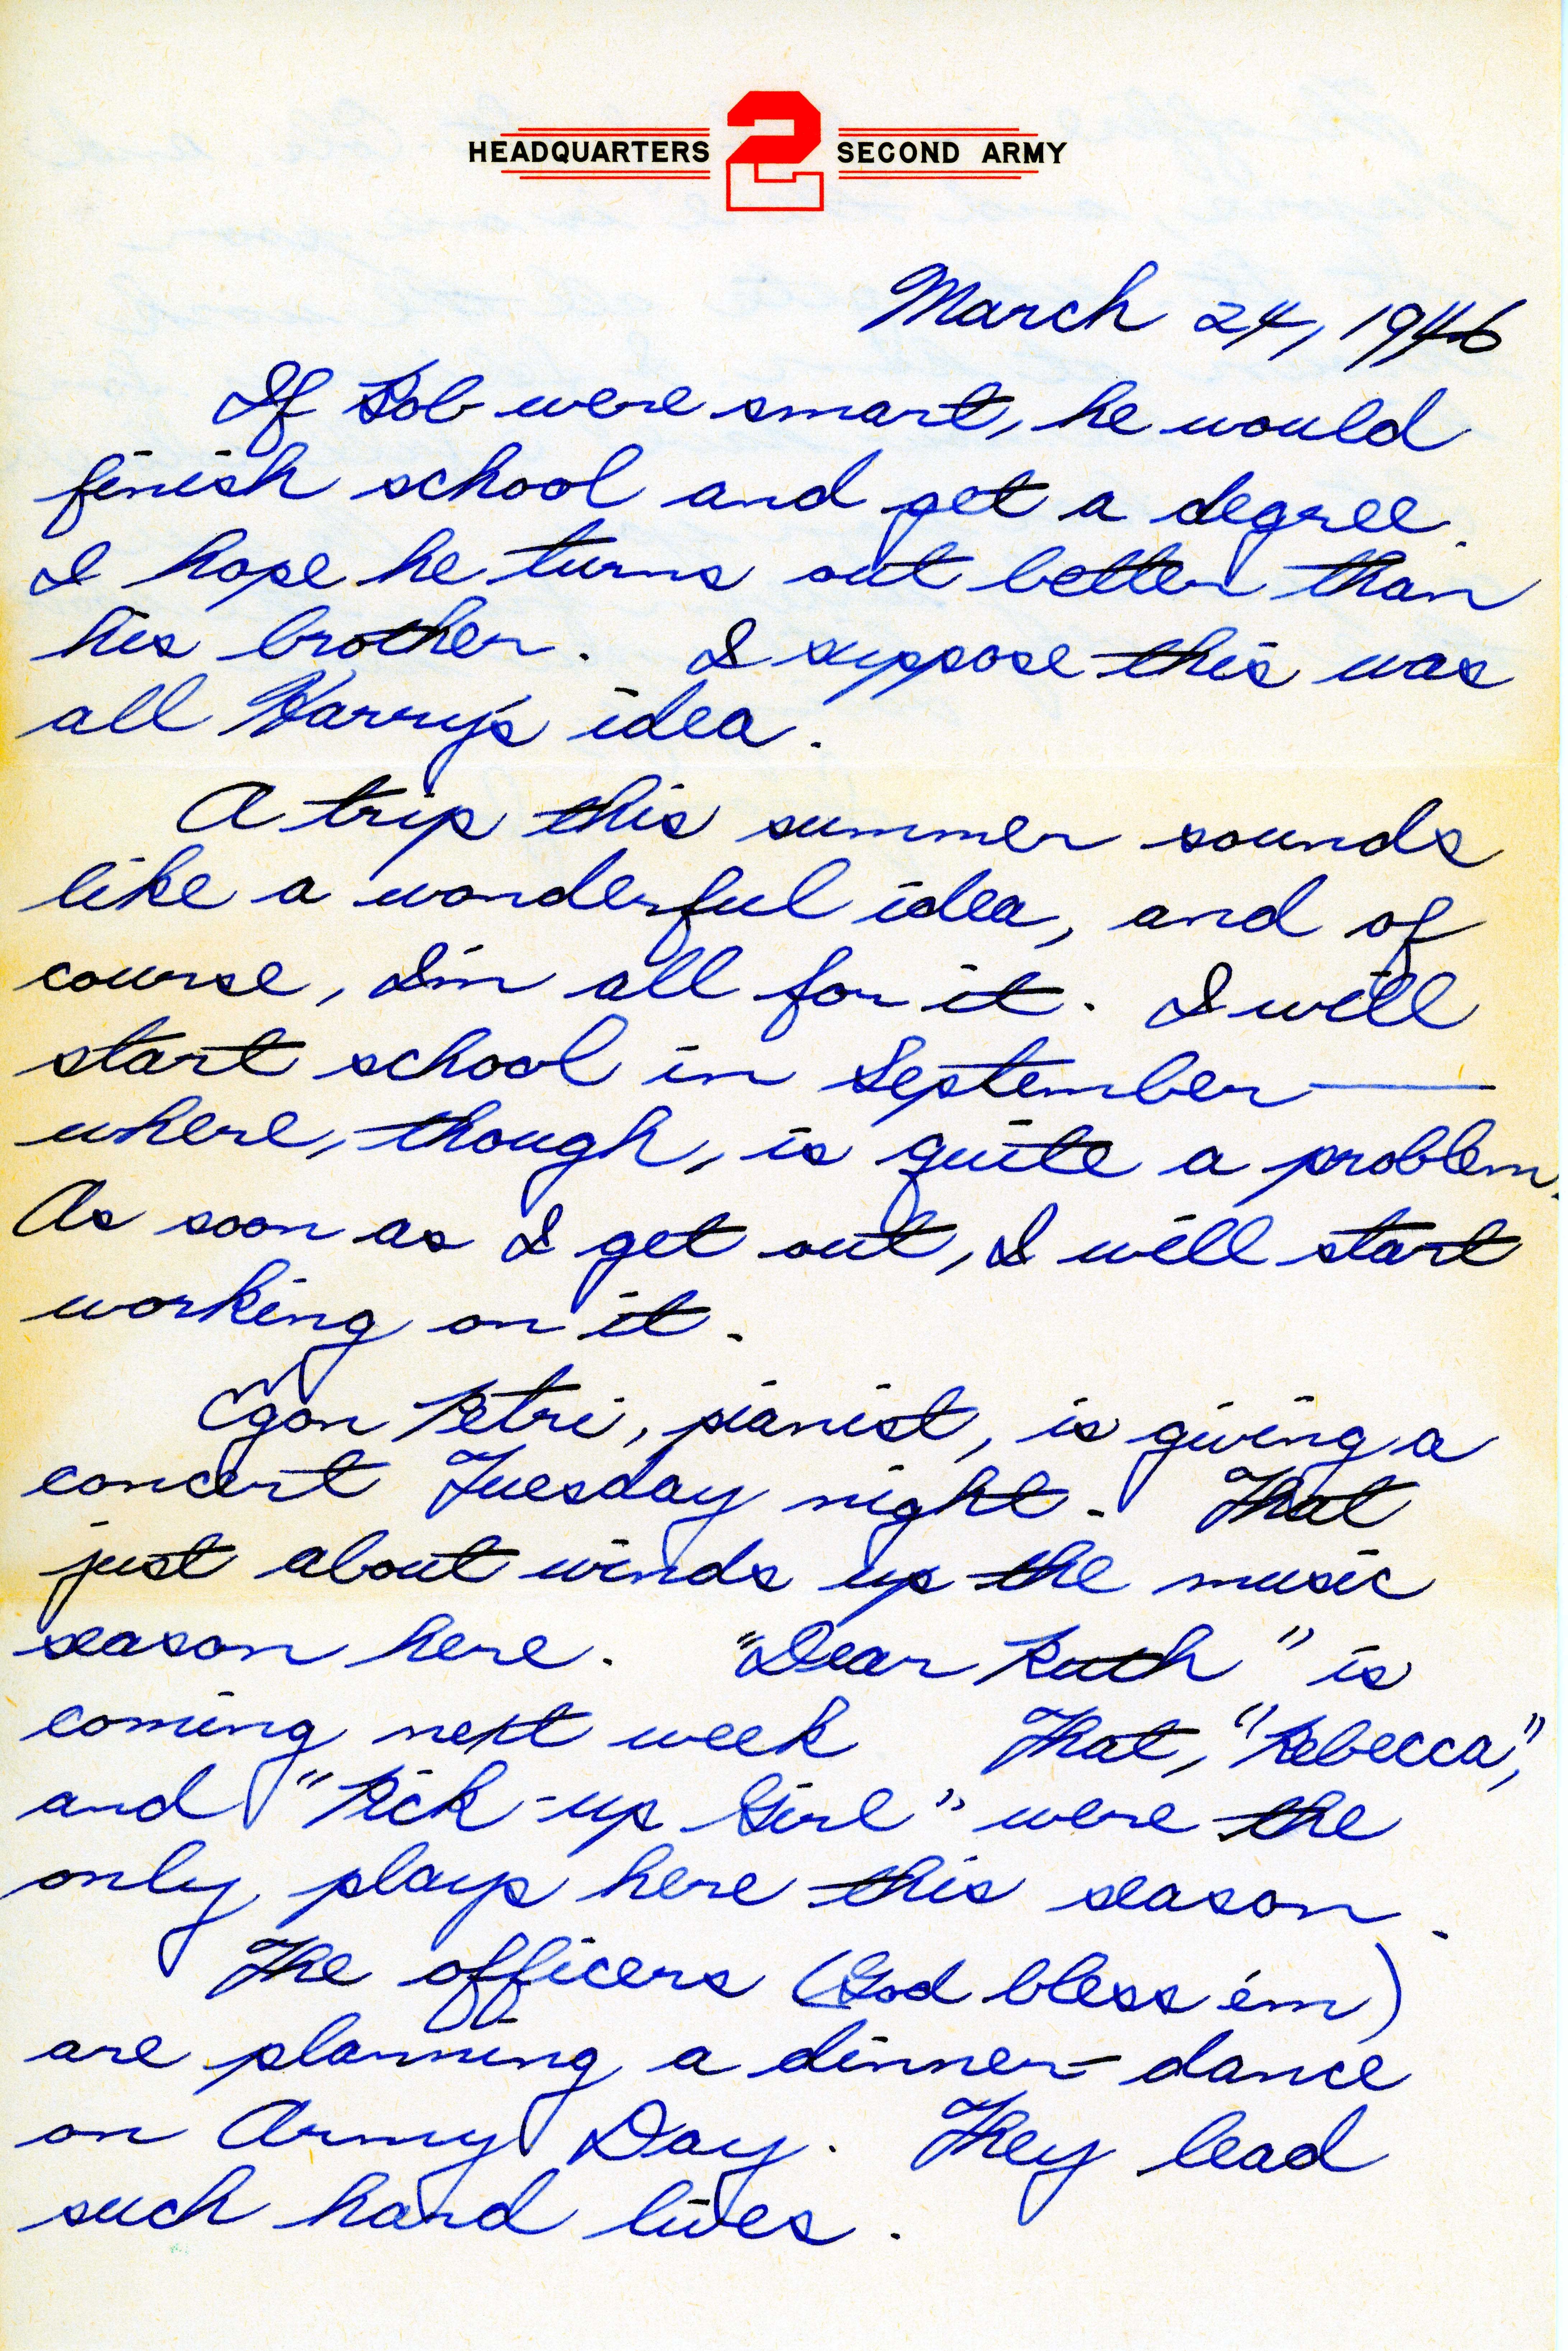 HEADQUARTERS 2 SECOND ARMY
March 24, 1946
If Bob were smart, he would
finish school and get a degree.
I hope he turns out better than
his brother. I suppose this was
all Harry's idea.
A trip this summer sounds
like a wonderful idea, and of
course, I'm all for it. I will
start school in September —
where, though, is quite a problem.
As soon as I get out, I will start
working on it.
Egon Petri, pianist, is giving a
concert Tuesday night. That
just about winds up the music
season here. "Dear Ruth" is
coming next week That, "Rebecca",
and "Pick-up Girl" were the
only plays here this season.
The officers (God bless 'em)
are planning a dinner-dance
on Army Day. They lead
such hard lives.